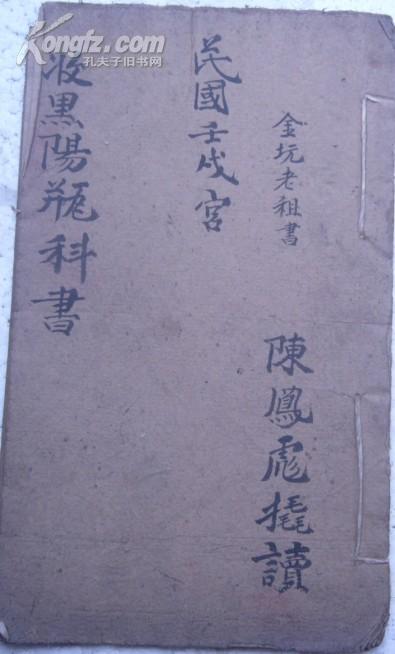 Kongfz.com
孔夫子旧书网
金坑老祖書
陳鳳彪撬讀
民國壬戌宮
收黑陽瓶科書